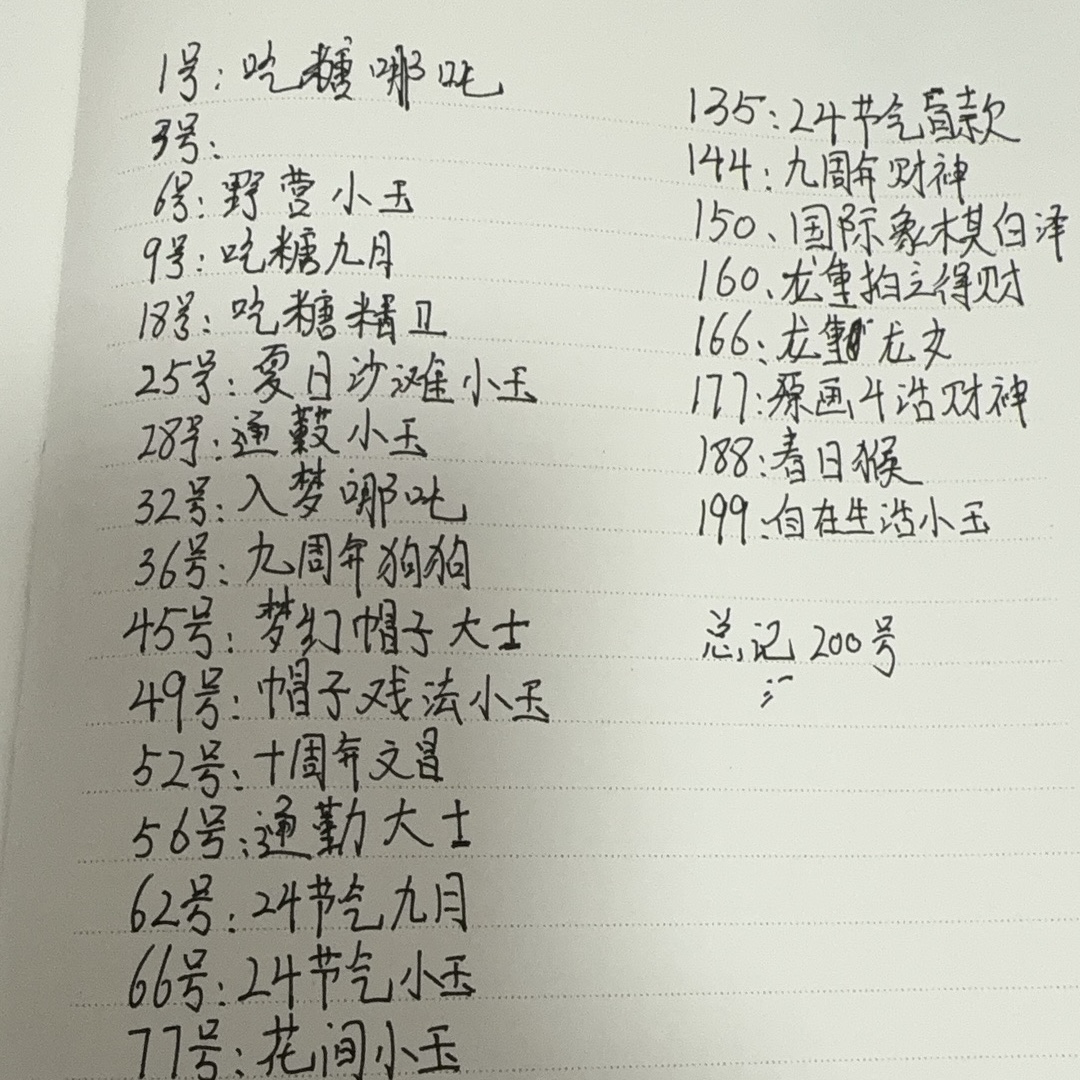 1号：吃糖哪吒
3号：
6号：野营小玉
9号：吃糖九月
18号：吃糖精卫
25号：夏日沙滩小玉
28号：通小玉
32号：入梦哪吒
36号：九周年狗狗
45号：梦幻帽子大士
49号：帽子戏法小玉
52号：十周年文昌
56号：通勤大士
62号：24节气九月
66号：24节气小玉
77号：花间小玉
135：24节气盲款
144：九周年财神
150、国际象棋白泽
160、龙隼拍立得财
166：龙隼龙女
177：原画4浩财神
188：春日猴
199：自在生活小玉
总记200号